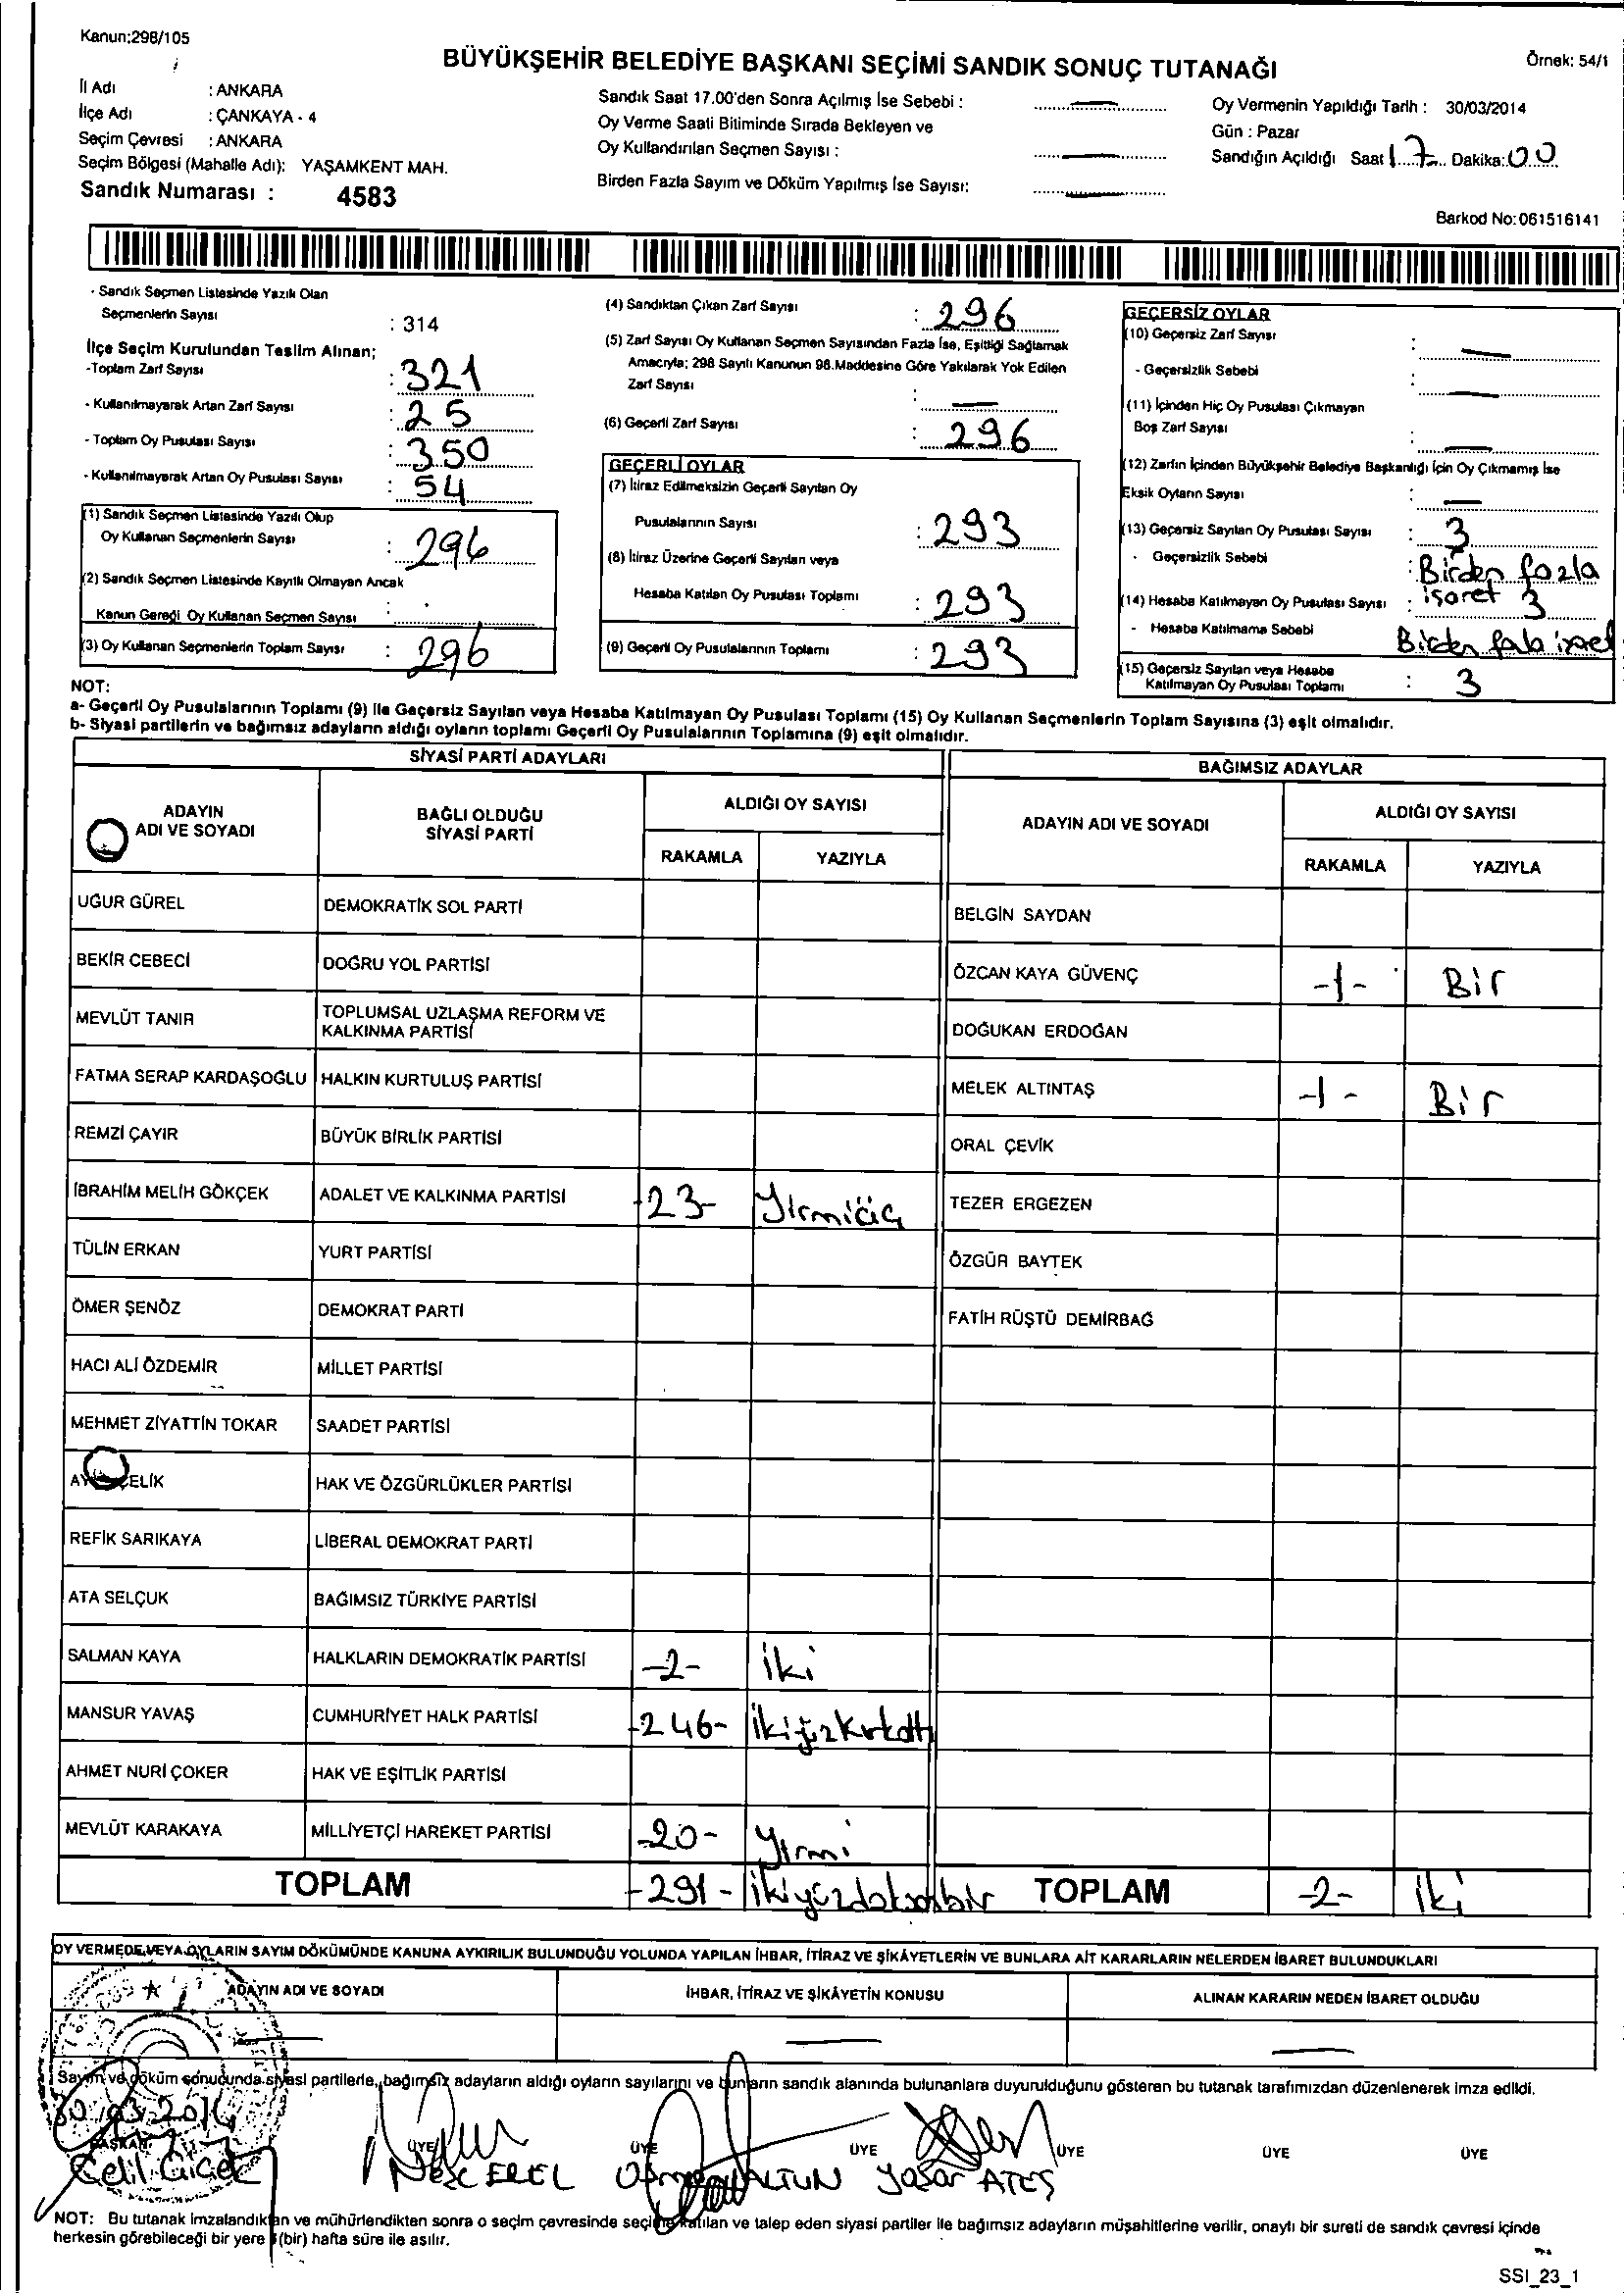 Kanun;298/105
BÜYÜKŞEHİR BELEDİYE BAŞKANI SEÇİMİ SANDIK SONUÇ TUTANAĞI
Örnek: 54/1
İl Adı : ANKARA
İlçe Adı : ÇANKAYA - 4
Seçim Çevresi : ANKARA
Seçim Bölgesi (Mahalle Adı): YAŞAMKENT MAH.
Sandık Numarası : 4583
Sandık Saat 17.00'den Sonra Açılmış İse Sebebi : —
Oy Verme Saati Bitiminde Sırada Bekleyen ve
Oy Kullandırılan Seçmen Sayısı : —
Birden Fazla Sayım ve Döküm Yapılmış İse Sayısı: —
Oy Vermenin Yapıldığı Tarih : 30/03/2014
Gün : Pazar
Sandığın Açıldığı Saat 17 Dakika: 00
Barkod No: 061516141
- Sandık Seçmen Listesinde Yazılı Olan
Seçmenlerin Sayısı : 314
İlçe Seçim Kurulundan Teslim Alınan;
-Toplam Zarf Sayısı : 321
- Kullanılmayarak Artan Zarf Sayısı : 25
- Toplam Oy Pusulası Sayısı : 350
- Kullanılmayarak Artan Oy Pusulası Sayısı : 54
(1) Sandık Seçmen Listesinde Yazılı Olup
Oy Kullanan Seçmenlerin Sayısı : 296
(2) Sandık Seçmen Listesinde Kayıtlı Olmayan Ancak
Kanun Gereği Oy Kullanan Seçmen Sayısı :
(3) Oy Kullanan Seçmenlerin Toplam Sayısı : 296
(4) Sandıktan Çıkan Zarf Sayısı : 296
(5) Zarf Sayısı Oy Kullanan Seçmen Sayısından Fazla İse, Eşitliği Sağlamak
Amacıyla; 298 Sayılı Kanunun 98.Maddesine Göre Yakılarak Yok Edilen
Zarf Sayısı : —
(6) Geçerli Zarf Sayısı : 296
GEÇERLİ OYLAR
(7) İtiraz Edilmeksizin Geçerli Sayılan Oy
Pusulalarının Sayısı : 293
(8) İtiraz Üzerine Geçerli Sayılan veya
Hesaba Katılan Oy Pusulası Toplamı : 293
(9) Geçerli Oy Pusulalarının Toplamı : 293
GEÇERSİZ OYLAR
(10) Geçersiz Zarf Sayısı : —
- Geçersizlik Sebebi : —
(11) İçinden Hiç Oy Pusulası Çıkmayan
Boş Zarf Sayısı : —
(12) Zarfın İçinden Büyükşehir Belediye Başkanlığı İçin Oy Çıkmamış İse
Eksik Oyların Sayısı : —
(13) Geçersiz Sayılan Oy Pusulası Sayısı : 3
- Geçersizlik Sebebi : Birden fazla
işaret
(14) Hesaba Katılmayan Oy Pusulası Sayısı : 3
- Hesaba Katılmama Sebebi Birden fazla işaret
(15) Geçersiz Sayılan veya Hesaba
Katılmayan Oy Pusulası Toplamı : 3
NOT:
a- Geçerli Oy Pusulalarının Toplamı (9) ile Geçersiz Sayılan veya Hesaba Katılmayan Oy Pusulası Toplamı (15) Oy Kullanan Seçmenlerin Toplam Sayısına (3) eşit olmalıdır.
b- Siyasi partilerin ve bağımsız adayların aldığı oyların toplamı Geçerli Oy Pusulalarının Toplamına (9) eşit olmalıdır.
SİYASİ PARTİ ADAYLARI
ADAYIN ADI VE SOYADI
BAĞLI OLDUĞU SİYASİ PARTİ
ALDIĞI OY SAYISI
RAKAMLA YAZIYLA
UĞUR GÜREL DEMOKRATİK SOL PARTİ
BEKİR CEBECİ DOĞRU YOL PARTİSİ
MEVLÜT TANIR TOPLUMSAL UZLAŞMA REFORM VE
KALKINMA PARTİSİ
FATMA SERAP KARDAŞOĞLU HALKIN KURTULUŞ PARTİSİ
REMZİ ÇAYIR BÜYÜK BİRLİK PARTİSİ
İBRAHİM MELİH GÖKÇEK ADALET VE KALKINMA PARTİSİ -23- Yirmiüç
TÜLİN ERKAN YURT PARTİSİ
ÖMER ŞENÖZ DEMOKRAT PARTİ
HACI ALİ ÖZDEMİR MİLLET PARTİSİ
MEHMET ZİYATTİN TOKAR SAADET PARTİSİ
ÇELİK HAK VE ÖZGÜRLÜKLER PARTİSİ
REFİK SARIKAYA LİBERAL DEMOKRAT PARTİ
ATA SELÇUK BAĞIMSIZ TÜRKİYE PARTİSİ
SALMAN KAYA HALKLARIN DEMOKRATİK PARTİSİ -2- İki
MANSUR YAVAŞ CUMHURİYET HALK PARTİSİ -246- İkiyüzkırkaltı
AHMET NURİ ÇOKER HAK VE EŞİTLİK PARTİSİ
MEVLÜT KARAKAYA MİLLİYETÇİ HAREKET PARTİSİ -20- Yirmi
TOPLAM -291- ikiyüzdoksanbir
BAĞIMSIZ ADAYLAR
ADAYIN ADI VE SOYADI
ALDIĞI OY SAYISI
RAKAMLA YAZIYLA
BELGİN SAYDAN
ÖZCAN KAYA GÜVENÇ -1- Bir
DOĞUKAN ERDOĞAN
MELEK ALTINTAŞ -1- Bir
ORAL ÇEVİK
TEZER ERGEZEN
ÖZGÜR BAYTEK
FATİH RÜŞTÜ DEMİRBAĞ
TOPLAM -2- iki
OY VERMEDE VEYA OYLARIN SAYIM DÖKÜMÜNDE KANUNA AYKIRILIK BULUNDUĞU YOLUNDA YAPILAN İHBAR, İTİRAZ VE ŞİKÂYETLERİN VE BUNLARA AİT KARARLARIN NELERDEN İBARET BULUNDUKLARI
ADAYIN ADI VE SOYADI İHBAR, İTİRAZ VE ŞİKÂYETİN KONUSU ALINAN KARARIN NEDEN İBARET OLDUĞU
— — —
Sayım ve döküm sonucunda siyasi partilerle, bağımsız adayların aldığı oyların sayılarını ve bunların sandık alanında bulunanlara duyurulduğunu gösteren bu tutanak tarafımızdan düzenlenerek imza edildi.
30/03/2014
BAŞKAN ÜYE ÜYE ÜYE ÜYE ÜYE ÜYE
EREL ALTUN Yaşar ATEŞ
NOT: Bu tutanak imzalandıktan ve mühürlendikten sonra o seçim çevresinde seçime katılan ve talep eden siyasi partiler ile bağımsız adayların müşahitlerine verilir, onaylı bir sureti de sandık çevresi içinde
herkesin görebileceği bir yere 1(bir) hafta süre ile asılır.
SSI_23_1